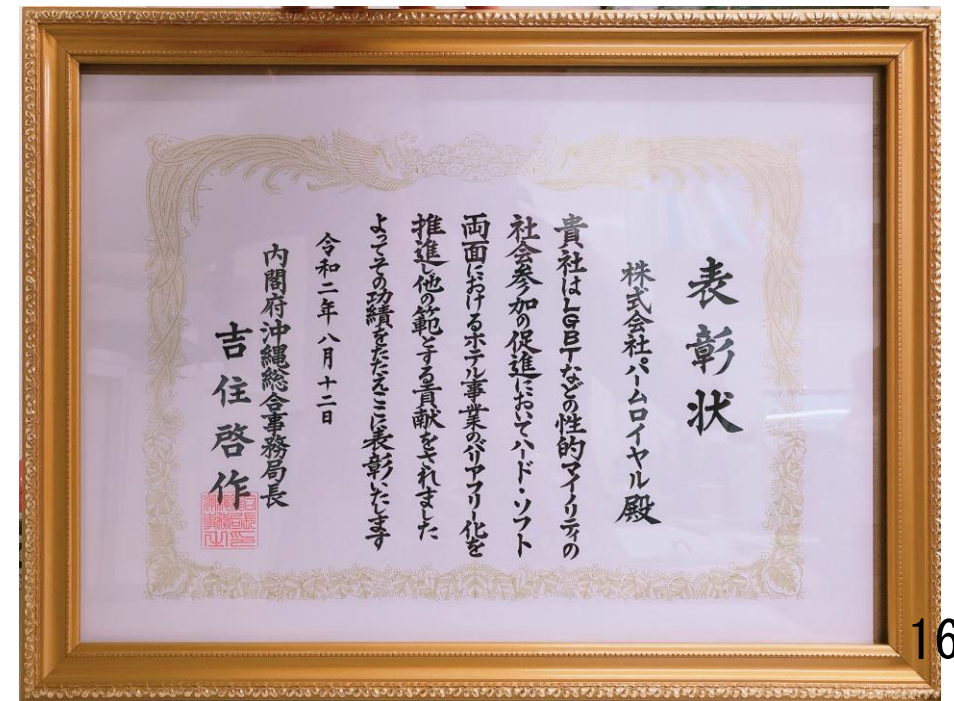 表彰状
株式会社パームロイヤル殿
貴社はLGBTなどの性的マイノリティの
社会参加の促進においてハード・ソフト
両面におけるホテル事業のバリアフリー化を
推進し他の範とする貢献をされました
よってその功績をたたえここに表彰いたします
令和二年八月十二日
内閣府沖縄総合事務局長
吉住啓作
16